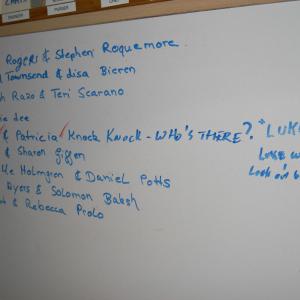 Rogers & Stephen Roquemore
Townsend & Lisa Bieren
Razo & Teri Scarano
dee
& Patricia Knock Knock - WHO'S THERE? "LUKE
& Sharon Giffen
Luke w
Holmgren & Daniel Potts
Look out b
Ayers & Solomon Baksh
& Rebecca Prolo